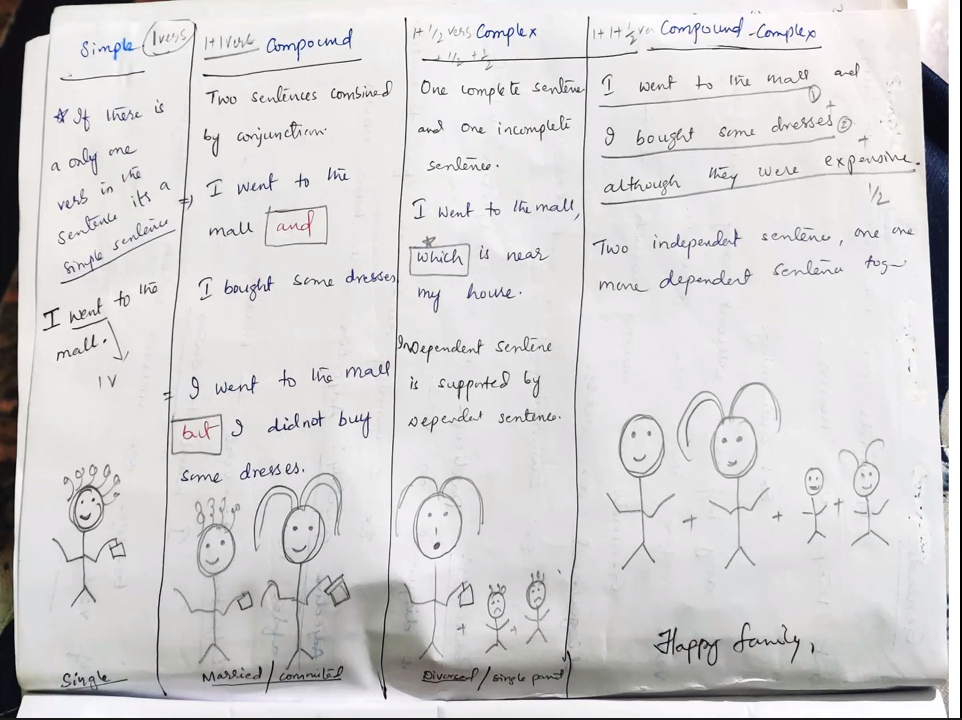 Simple 1verb
* If there is
a only one
verb in the
sentence its a
simple sentence
I went to the
mall.
1V
Single
1+1verb Compound
Two sentences combined
by conjunction.
=> I went to the
mall and
I bought some dresses
= I went to the mall
but I didnot buy
some dresses.
Married / commited
1+ 1/2 verb Complex
+ 1/2 + 1/2
One complete sentence
and one incomplete
sentence.
I went to the mall,
*
which is near
my house.
Independent sentence
is supported by
dependent sentence.
+ +
Divorced / single parent
1+1+ 1/2 ver Compound-Complex
I went to the mall and
① +
I bought some dresses ②
+
although they were expensive.
1/2
Two independent sentence, one one
more dependent sentence
+ + +
Happy family,